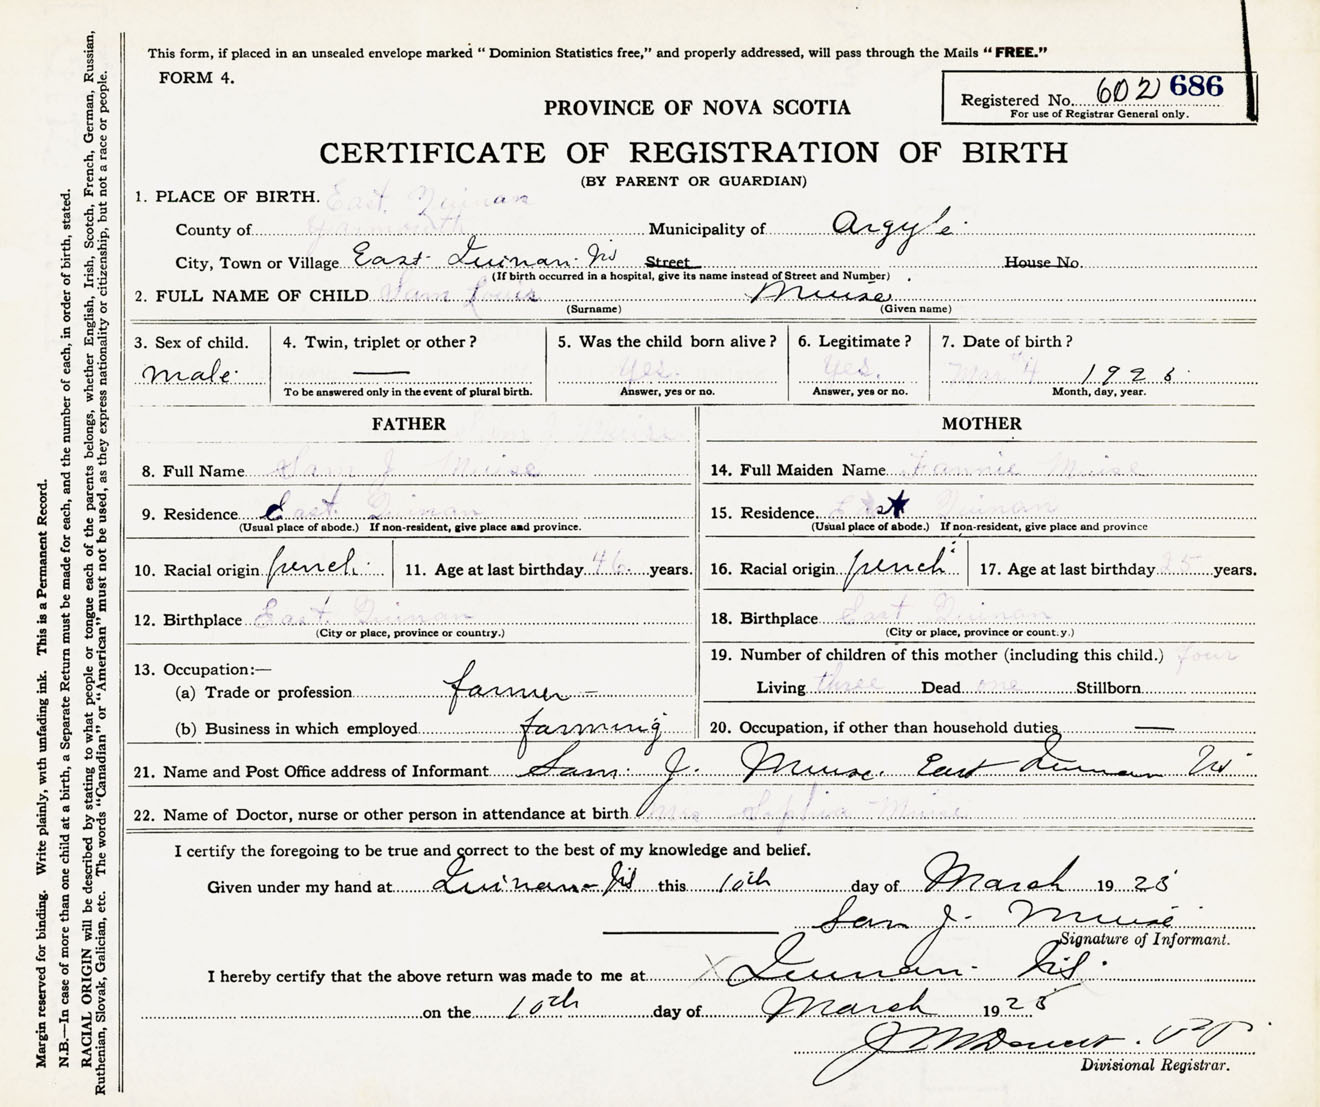 This form, if placed in an unsealed envelope marked "Dominion Statistics free," and properly addressed, will pass through the Mails "FREE."
FORM 4.
Registered No. 602 686
For use of Registrar General only.
PROVINCE OF NOVA SCOTIA
CERTIFICATE OF REGISTRATION OF BIRTH
(BY PARENT OR GUARDIAN)
1. PLACE OF BIRTH. East Quinan
County of Yarmouth Municipality of Argyle
City, Town or Village East Quinan NS Street House No.
(If birth occurred in a hospital, give its name instead of Street and Number)
2. FULL NAME OF CHILD Sam Louis Muise
(Surname) (Given name)
3. Sex of child. 4. Twin, triplet or other? 5. Was the child born alive? 6. Legitimate? 7. Date of birth?
male — Yes. Yes. Mar 4
To be answered only in the event of plural birth. Answer, yes or no. Answer, yes or no. Month, day, year.
FATHER
8. Full Name Sam J Muise
9. Residence East Quinan
(Usual place of abode.) If non-resident, give place and province.
10. Racial origin french 11. Age at last birthday 46 years.
12. Birthplace East Quinan
(City or place, province or country.)
13. Occupation:—
(a) Trade or profession farmer
(b) Business in which employed farming
MOTHER
14. Full Maiden Name Fannie Muise
15. Residence East Quinan
(Usual place of abode.) If non-resident, give place and province
16. Racial origin french 17. Age at last birthday 25 years.
18. Birthplace East Quinan
(City or place, province or count.y.)
19. Number of children of this mother (including this child.) four
Living three Dead one Stillborn
20. Occupation, if other than household duties —
21. Name and Post Office address of Informant Sam. J. Muise. East Quinan NS
22. Name of Doctor, nurse or other person in attendance at birth Mrs Muise
I certify the foregoing to be true and correct to the best of my knowledge and belief.
Given under my hand at Quinan NS this 10th day of March 19
Sam J. Muise
Signature of Informant.
I hereby certify that the above return was made to me at Quinan. NS.
on the 10th day of March 19
Divisional Registrar.
Margin reserved for binding. Write plainly, with unfading ink. This is a Permanent Record.
N.B.—In case of more than one child at a birth, a Separate Return must be made for each, and the number of each, in order of birth, stated.
RACIAL ORIGIN will be described by stating to what people or tongue each of the parents belongs, whether English, Irish, Scotch, French, German, Russian,
Ruthenian, Slovak, Galician, etc. The words "Canadian" or "American" must not be used, as they express nationality or citizenship, but not a race or people.